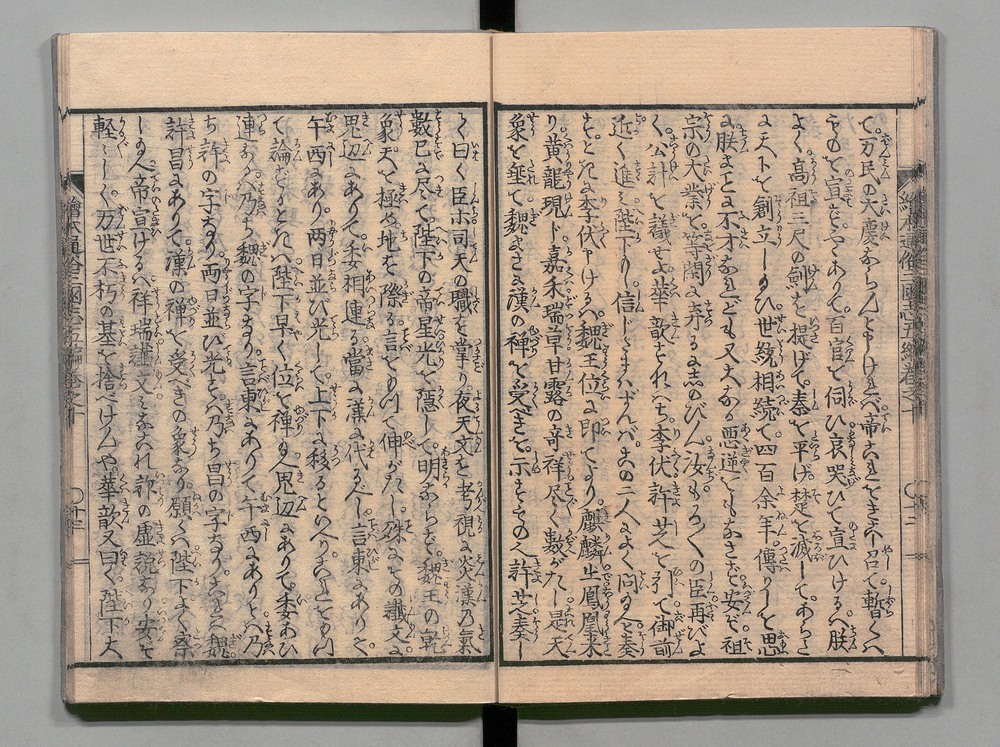 て。万民の大慶ならんと申ければ。帝これをきき召て。暫くハ
ものも宣ハず。ややありて。百官を伺ひ。哀哭ひて宣ひけるハ。朕
よく。高祖三尺の剣を提げて。秦を平げ。楚を滅して。あらた
に天下を創立しめひ世統相続て四百余年。傳りしと思
ふ。朕まことに不才なれども。又大なる悪逆どもなさず。安ぞ祖
宗の大業を。等閑に弃るに忍びん。汝もろくの臣再びよ
く。公計を議せよ。華歆それハち。李伏許芝を引て。御前
近く進ミ。陛下もし信じたまハずんバ。この二人によく問ると奏
す。ときに李伏申けるハ。魏王位に即てより。麒麟生鳳凰来
り。黄龍現ト嘉禾瑞草甘露の奇祥尽く数がたし。是天
象を垂て。魏まさに漢の禅を受べきを。示すものへ。許芝奏し
く曰く。臣ホ司天の職を掌り。夜天文を考視に。炎漢乃氣
數已に尽て。陛下の帝星光を隠して。明ならず。魏王の乾
象天を極め地を際る。言をもつて伸がたし。殊にその讖文に
鬼辺にありて。委相連る。當に漢に代るべし。言東にありて。
午西にあり。両日並び光して。上下に移るといへり。これをもつ
て論ずるときハ。陛下早く位を禅へ。鬼辺にありて。委あひ
連るハ。乃ち魏の字なり。言東にありて。午西にありとハ。乃
ち許の字なり。両日並び光るとハ。乃ち昌の字なり。これ魏
許昌にありて。漢の禅を受べきの象なり。願くハ陛下よく察
したまへ。帝宣けるハ。祥瑞讖文ミなこれ詐の虚説なり。安ぞ
軽々しく。万世不朽の基を捨べけんや。華歆又曰く。陛下大
繪本通俗三國志五編巻之十
〇十二